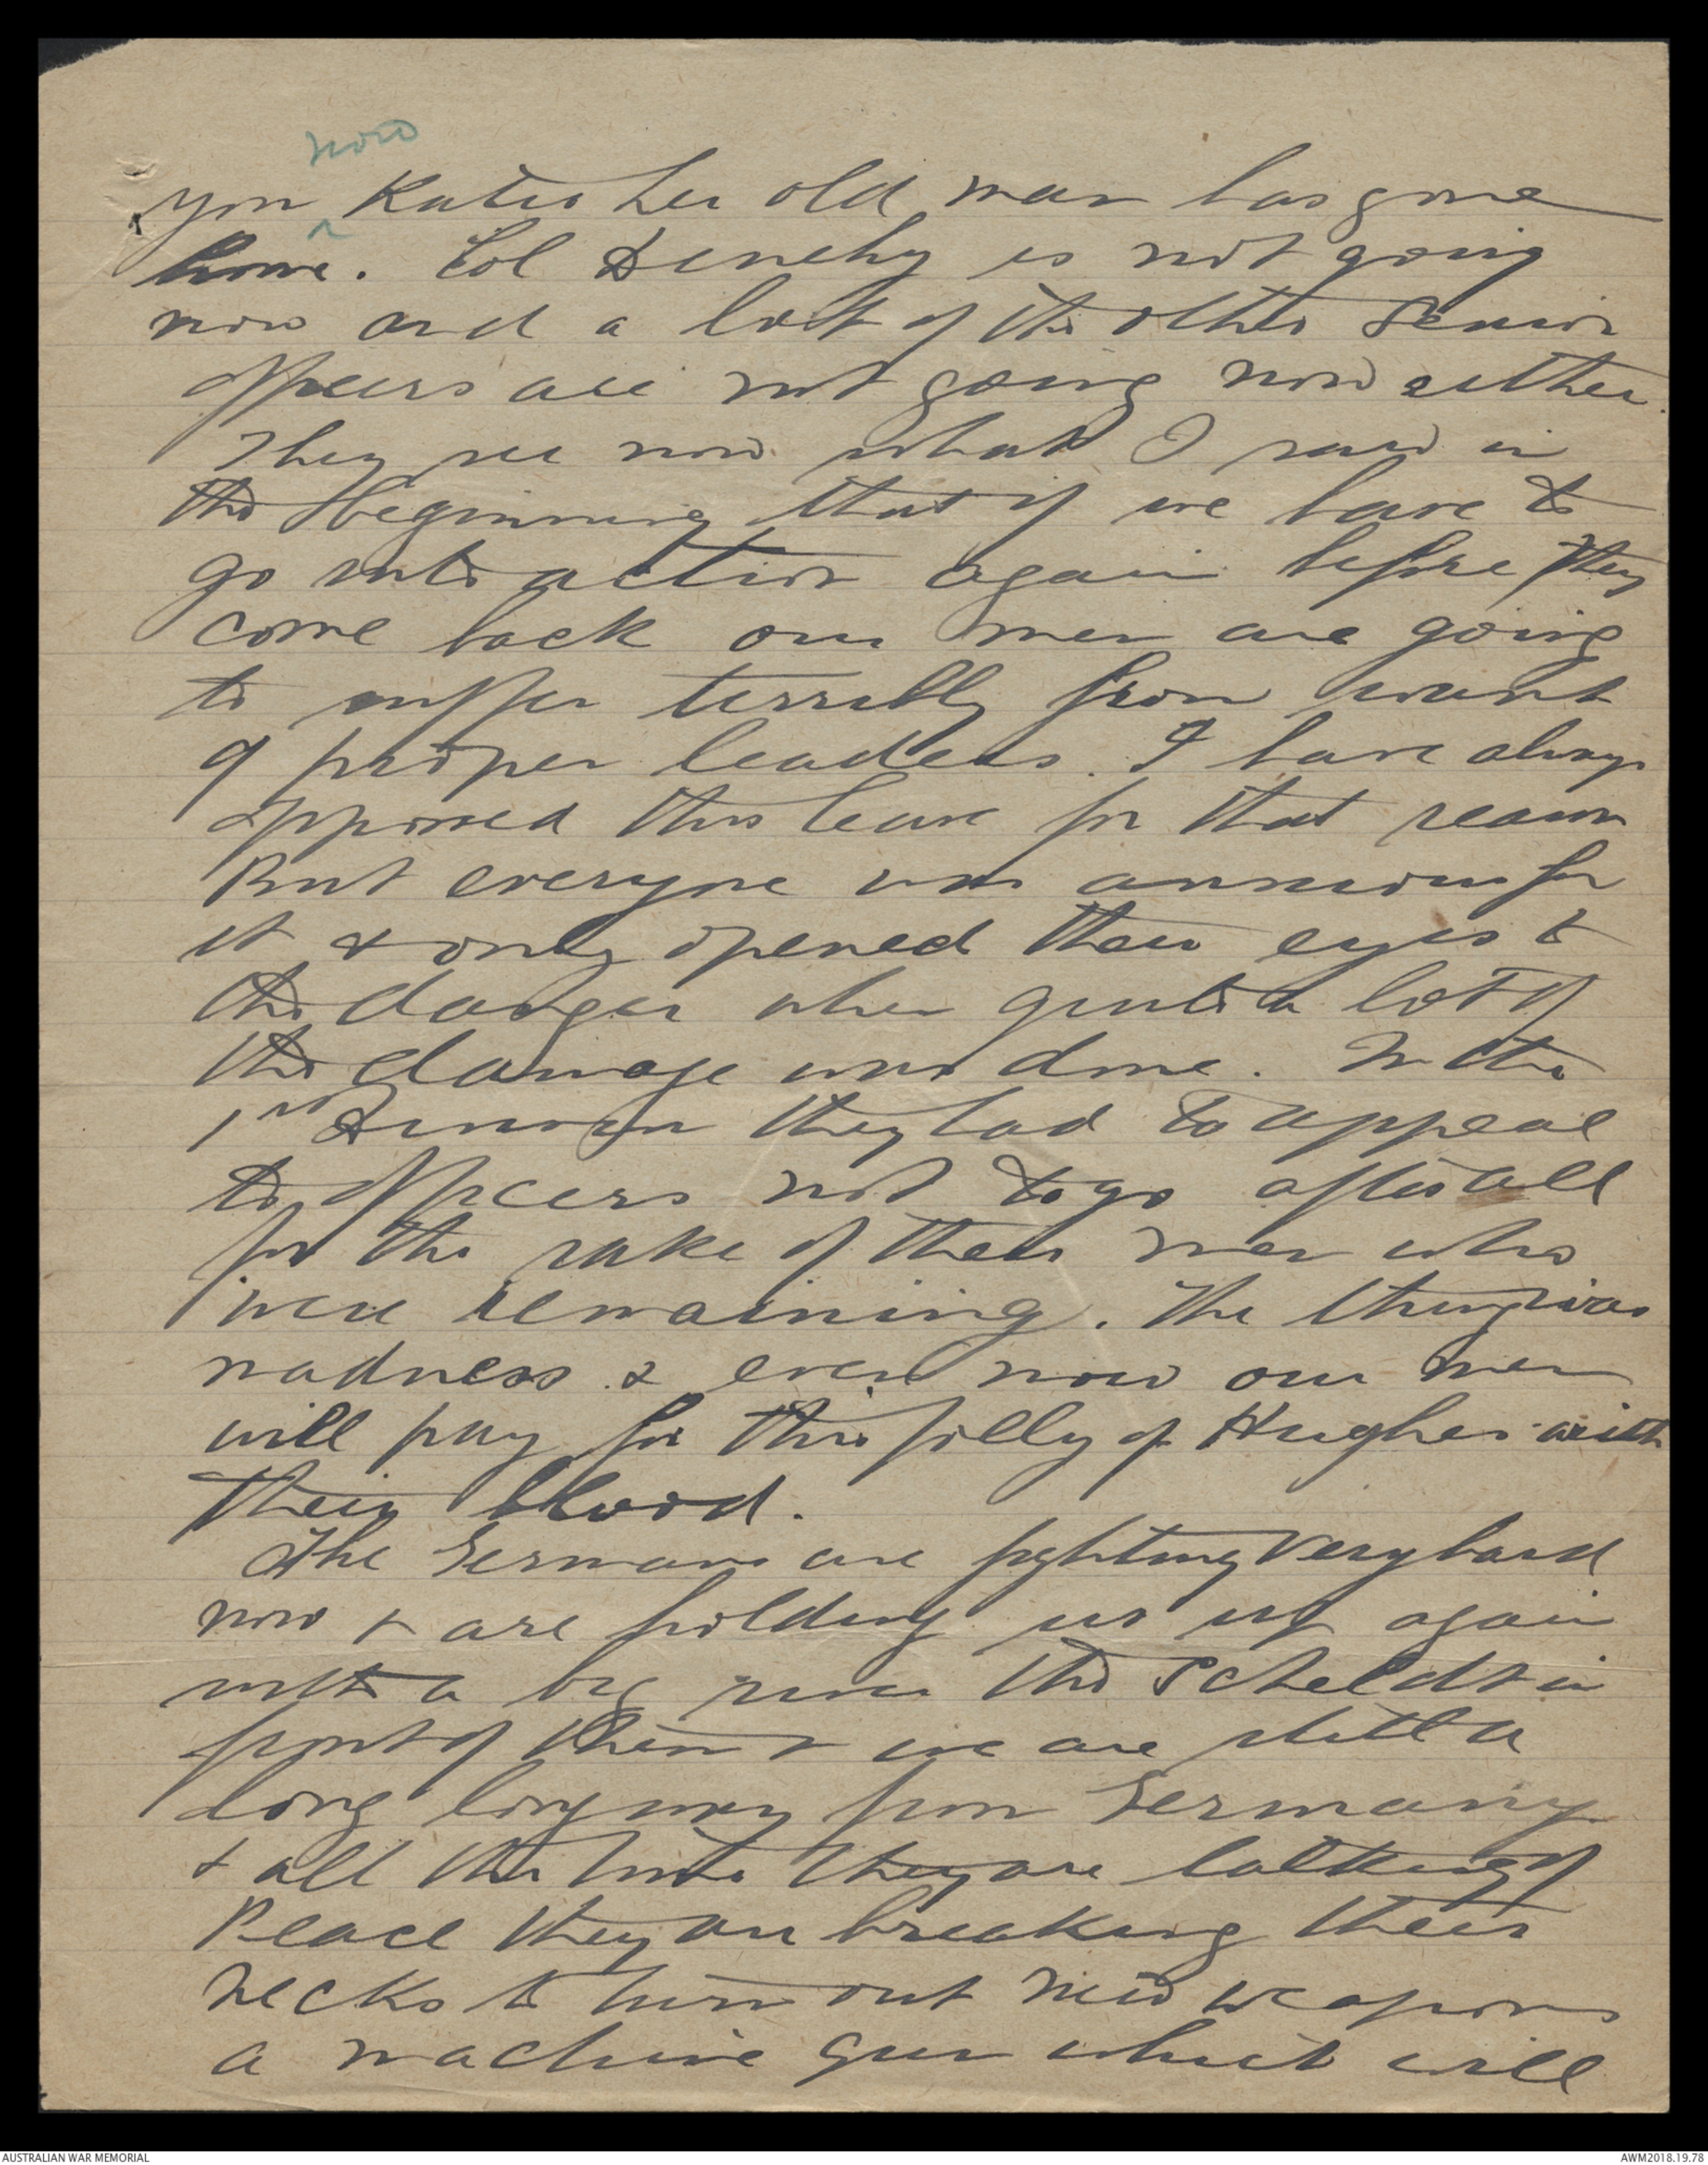 now
you Katie her old man has gone
home. Col Denehy is not going
now and a lott of the other Senior
officers are not going now either.
They see now what I saw in
the beginning that if we have to
go into action again before they
come back our men are going
to suffer terribly from want
of proper leaders. I have always
opposed this leave for that reason
But everyone was anxious for
it & only opened their eyes to
the danger when quite a lot of
the damage was done. In the
1st Division they had to appeal
to officers not to go after all
for the sake of their men who
were remaining. The thing was
madness & even now our men
will pay for this folly of Hughes with
their blood.
The Germans are fighting very hard
now & are holding us up again
with a big river the Scheldt in
front of them & we are still a
long long way from Germany
& all the time they are talking of
Peace they are breaking their
necks to turn out new weapons
a machine gun which will
AUSTRALIAN WAR MEMORIAL
AWM2018.19.78